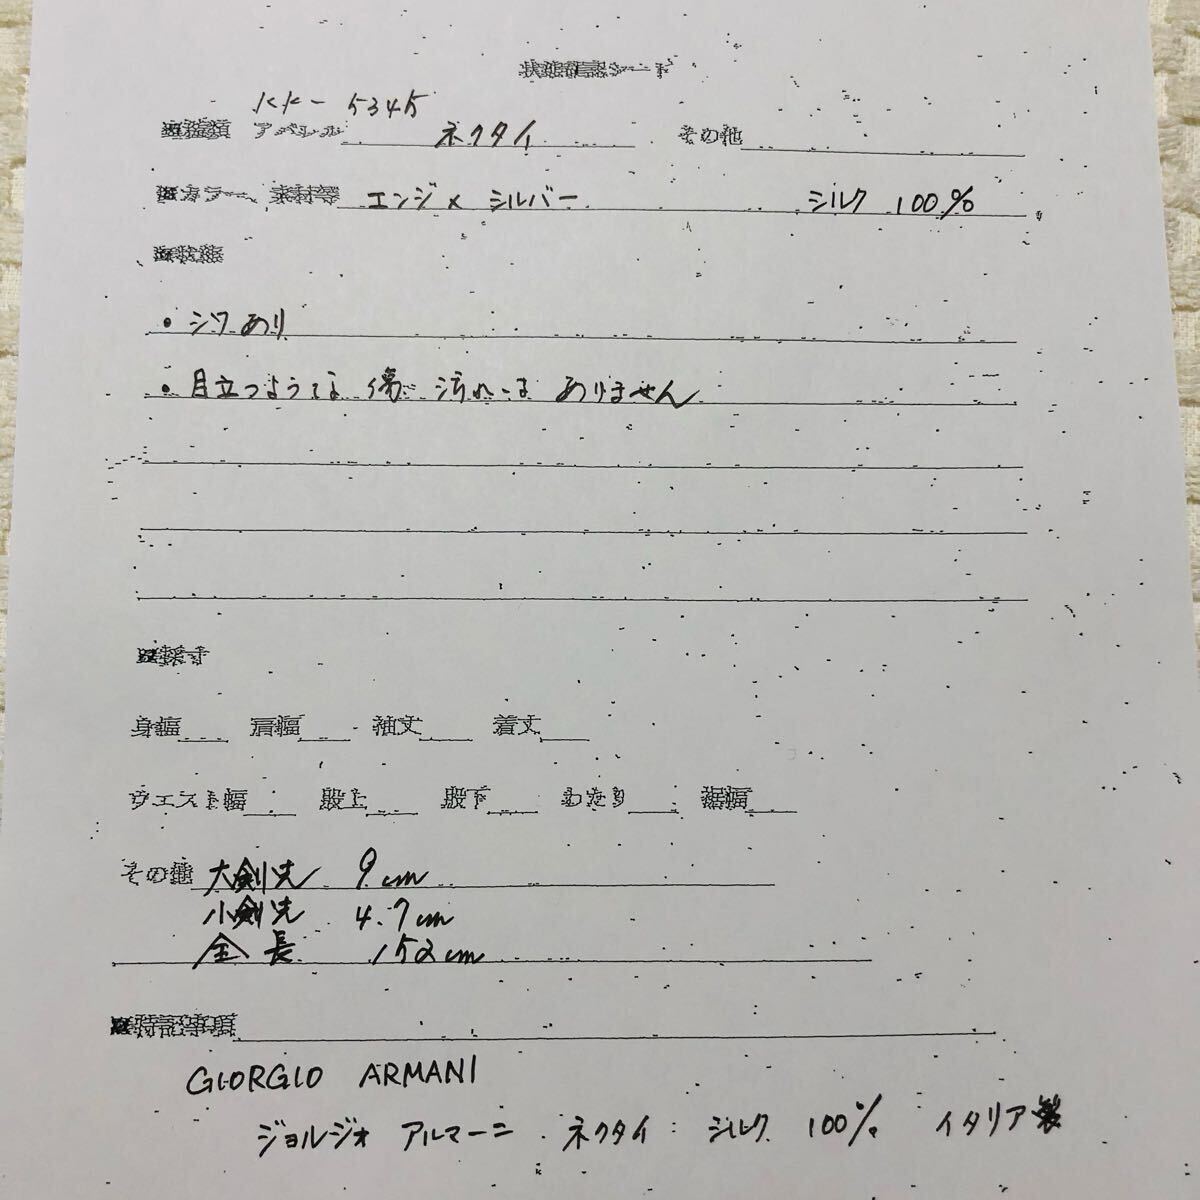 状態確認シート
KK-5345
※種類 アパレル ネクタイ その他
※カラー、素材等 エンジ×シルバー シルク 100%
※状態
・シワあり
・目立つような傷 汚れは ありません
※採寸
身幅 肩幅 袖丈 着丈
ウエスト幅 股上 股下 わたり 裾幅
その他 大剣先 9cm
小剣先 4.7cm
全長 152cm
※特記事項
GIORGIO ARMANI
ジョルジオ アルマーニ ネクタイ シルク 100% イタリア製